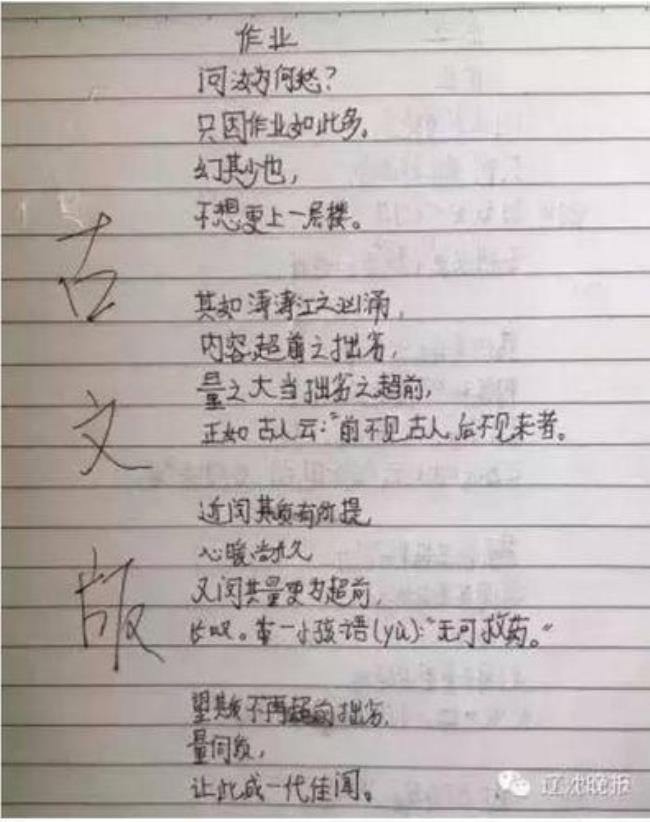 作业
问汝为何愁?
只因作业如此多。
幻其少也,
不想更上一层楼。
其如涛涛江之汹涌,
内容超前之拙劣,
量之大当拙劣之超前,
正如古人云:"前不见古人,后不见来者。
近闻其质有所提
心暖尚永久
又闻其量更为超前,
长叹。拿一小孩语(yù):"无可救药。"
望其质不再超前拙劣,
量同质,
让此成一代佳闻。
古
文
版
辽沈晚报